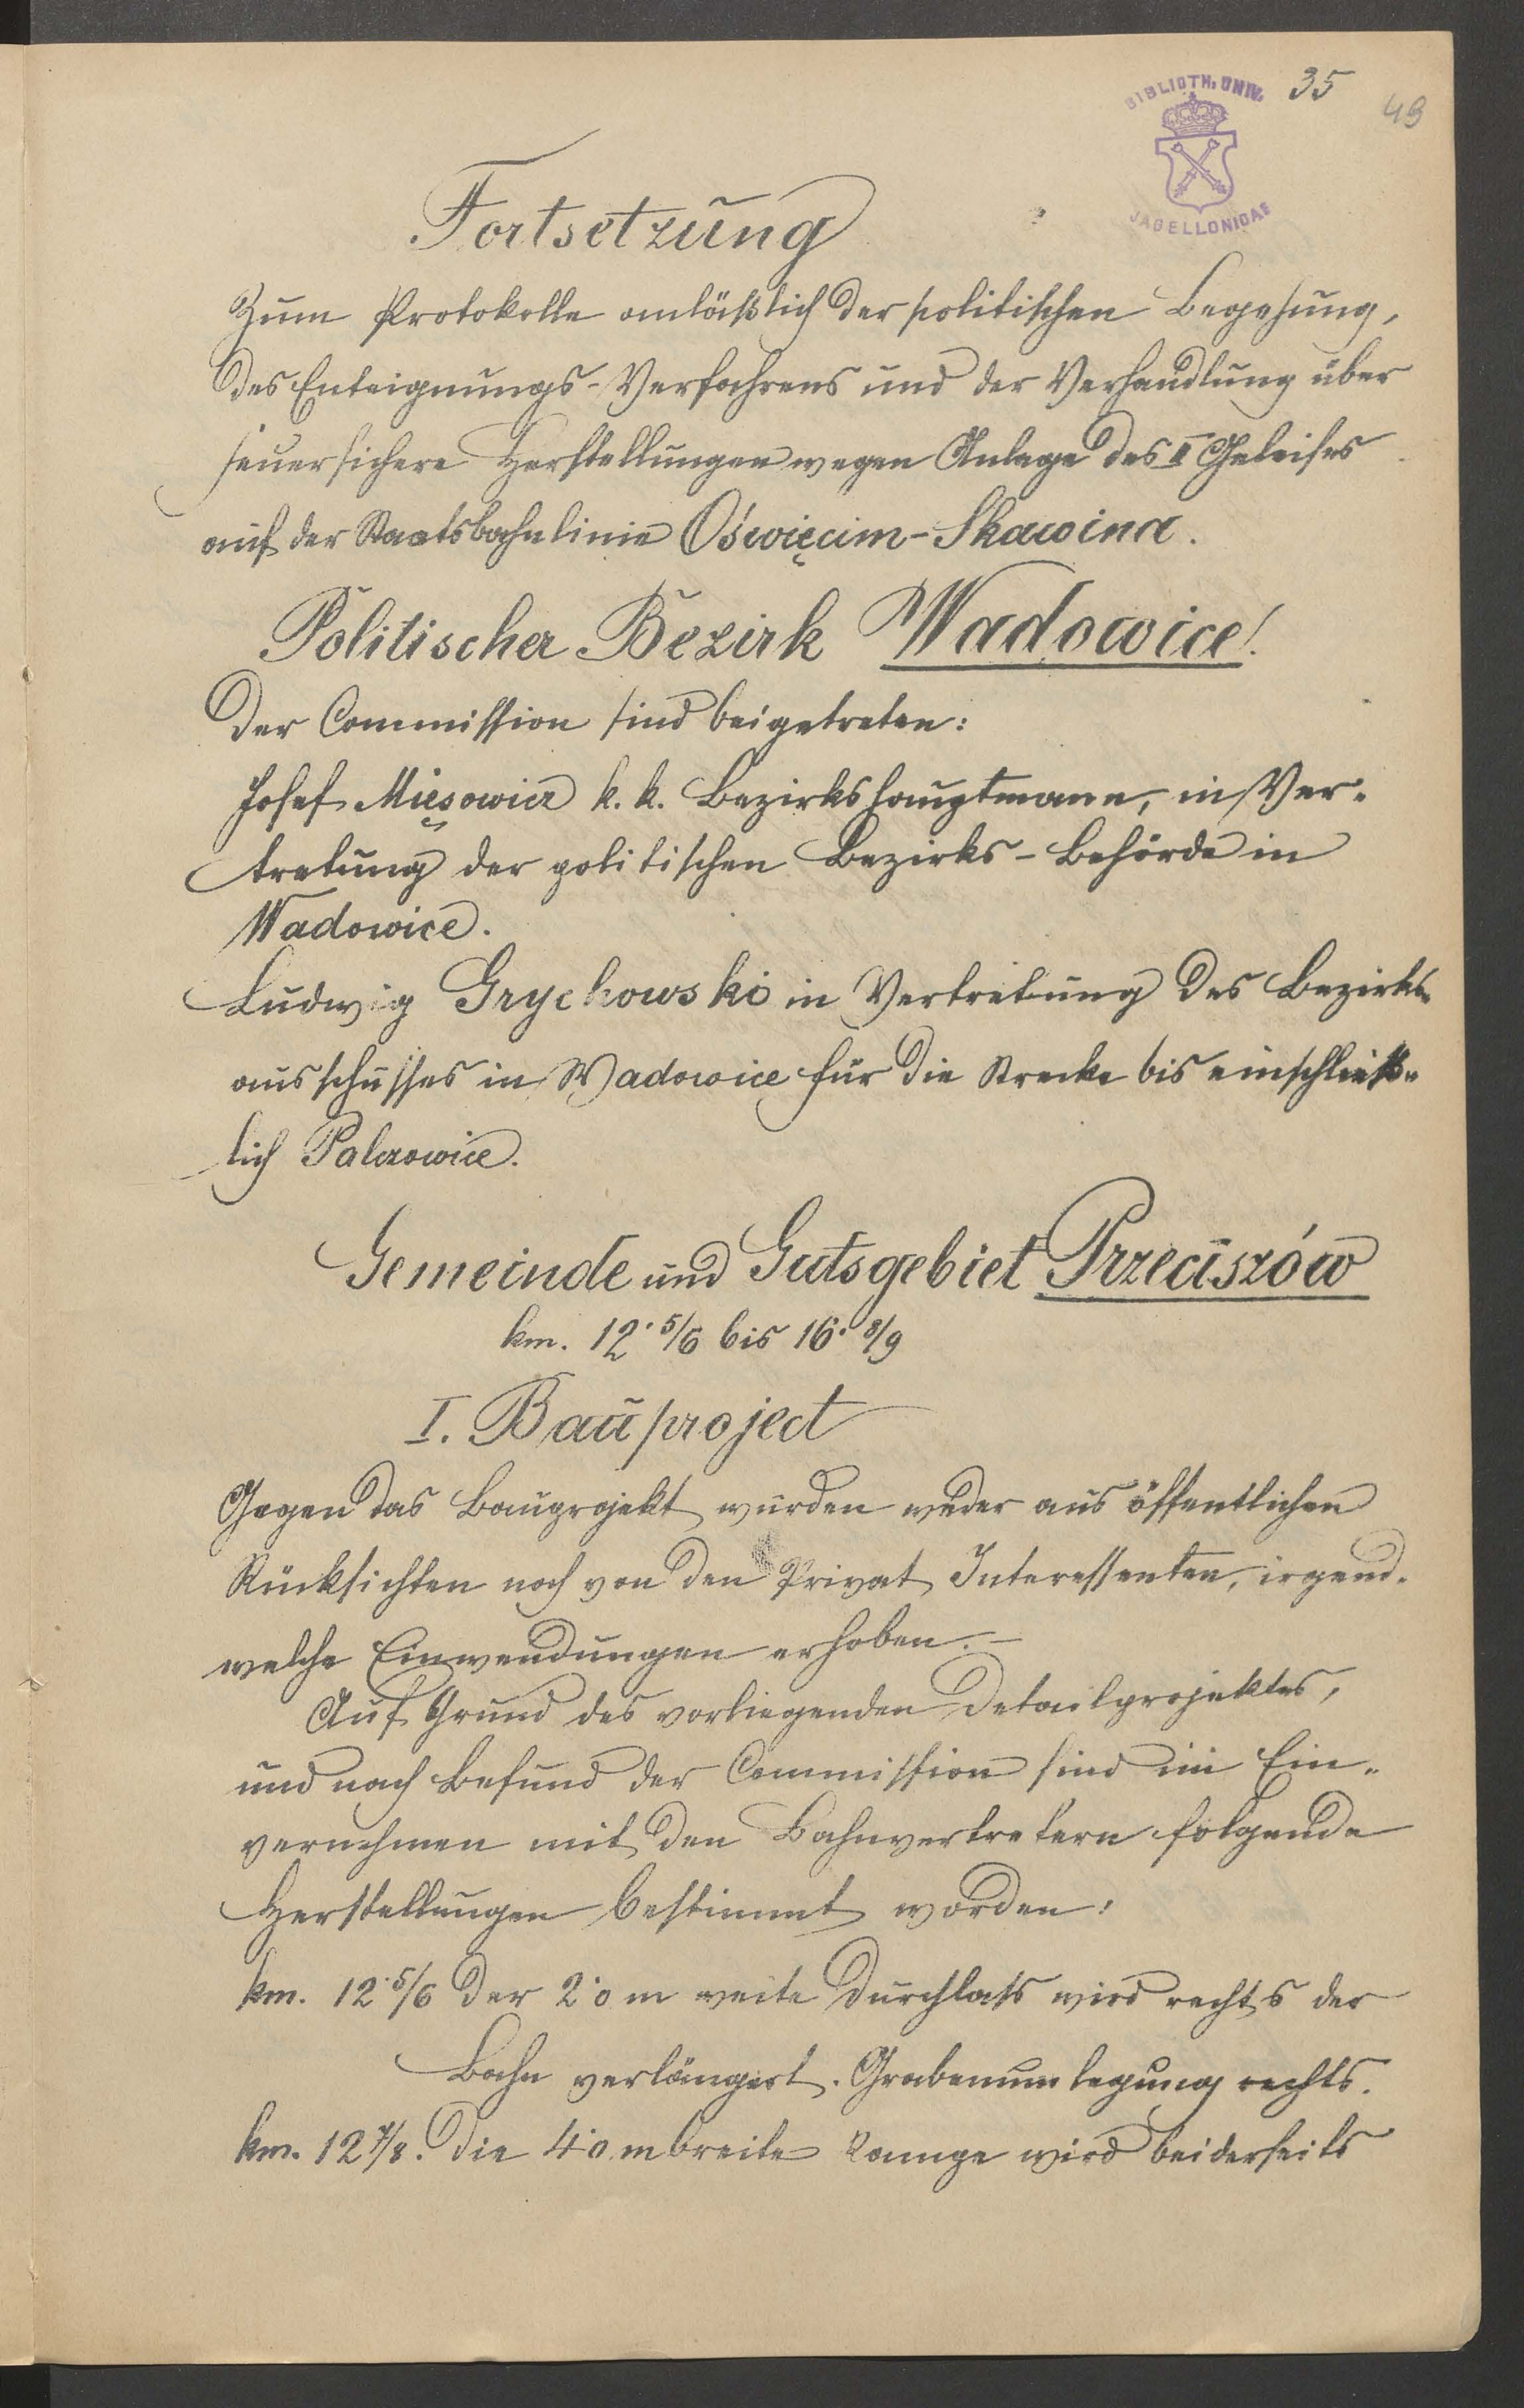 35
49
BIBLIOTH. UNIV.
JAGELLONICAE
Fortsetzung
Zum Protokolle anläßlich der politischen Begehung,
des Enteignungs-Verfahrens und der Verhandlung über
feuersichere Herstellungen wegen Anlage des II Geleises
auf der Staatsbahnlinie Oświęcim-Skawina.
Politischer Bezirk Wadowice!
Der Commission sind beigetreten:
Josef Mięsowicz k. k. Bezirkshauptmann, in Ver-
tretung der politischen Bezirks-Behörde in
Wadowice.
Ludwig Grychowski in Vertretung des Bezirks-
ausschusses in Wadowice für die Strecke bis einschließ-
lich Palczowice.
Gemeinde und Gutsgebiet Przeciszów
km. 12·5/6 bis 16·8/9
I. Bauproject
Gegen das Bauprojekt wurden weder aus öffentlichen
Rücksichten noch von den Privat Interessenten, irgend-
welche Einwendungen erhoben.–
Auf Grund des vorliegenden Detailprojektes,
und nach Befund der Commission sind im Ein-
vernehmen mit den Bahnvertretern folgende
Herstellungen bestimmt worden:
km. 12·5/6 Der 2·0 m weite Durchlaß wird rechts der
Bahn verlängert. Grabenumlegung rechts.
km. 12 7/8. Die 4·0 m breite Rampe wird beiderseits